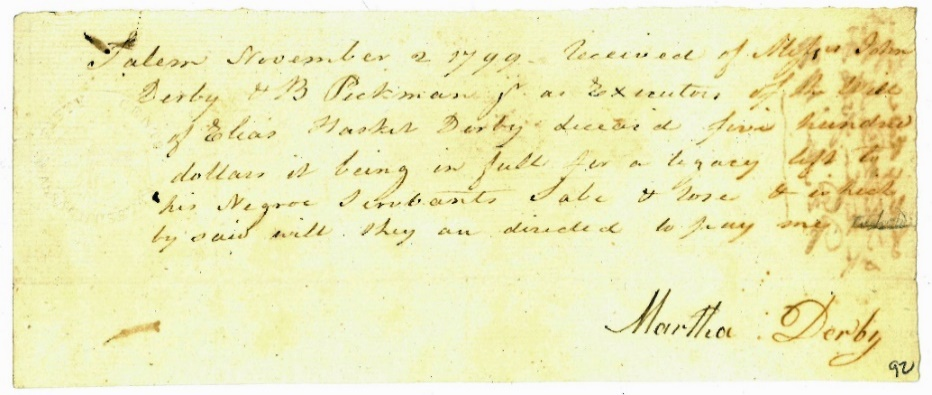 Salem November 2 1799 Received of Messrs John
Derby & B Pickman Jr. as Executors of the Will
of Elias Hasket Derby deceasd five hundred
dollars it being in full for a legacy left to
his Negroe Servants Sabe & Rose & which
by said will they are directed to pay me
Martha Derby
92